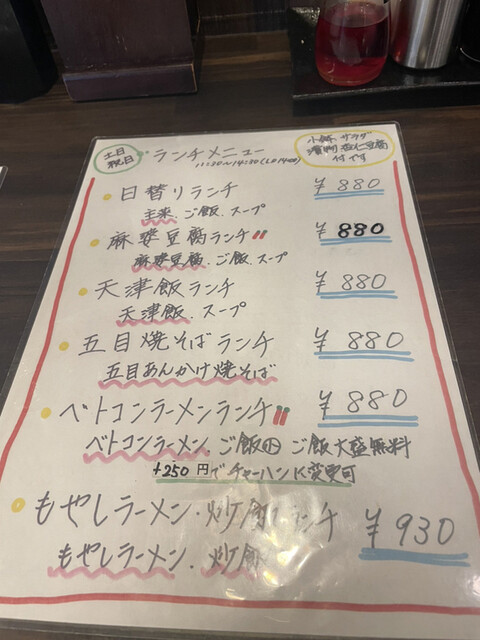 土日
祝日
・ランチメニュー
11:30~14:30(L.O14:00)
小鉢、サラダ
漬物、杏仁豆腐
付です
・日替りランチ ¥880
主菜、ご飯、スープ
・麻婆豆腐ランチ ¥880
麻婆豆腐、ご飯、スープ
・天津飯ランチ ¥880
天津飯、スープ
・五目焼そばランチ ¥880
五目あんかけ焼そば
・ベトコンラーメンランチ ¥880
ベトコンラーメン、ご飯小 ご飯大盛無料
+250円でチャーハンに変更可
・もやしラーメン・炒飯ランチ ¥930
もやしラーメン、炒飯